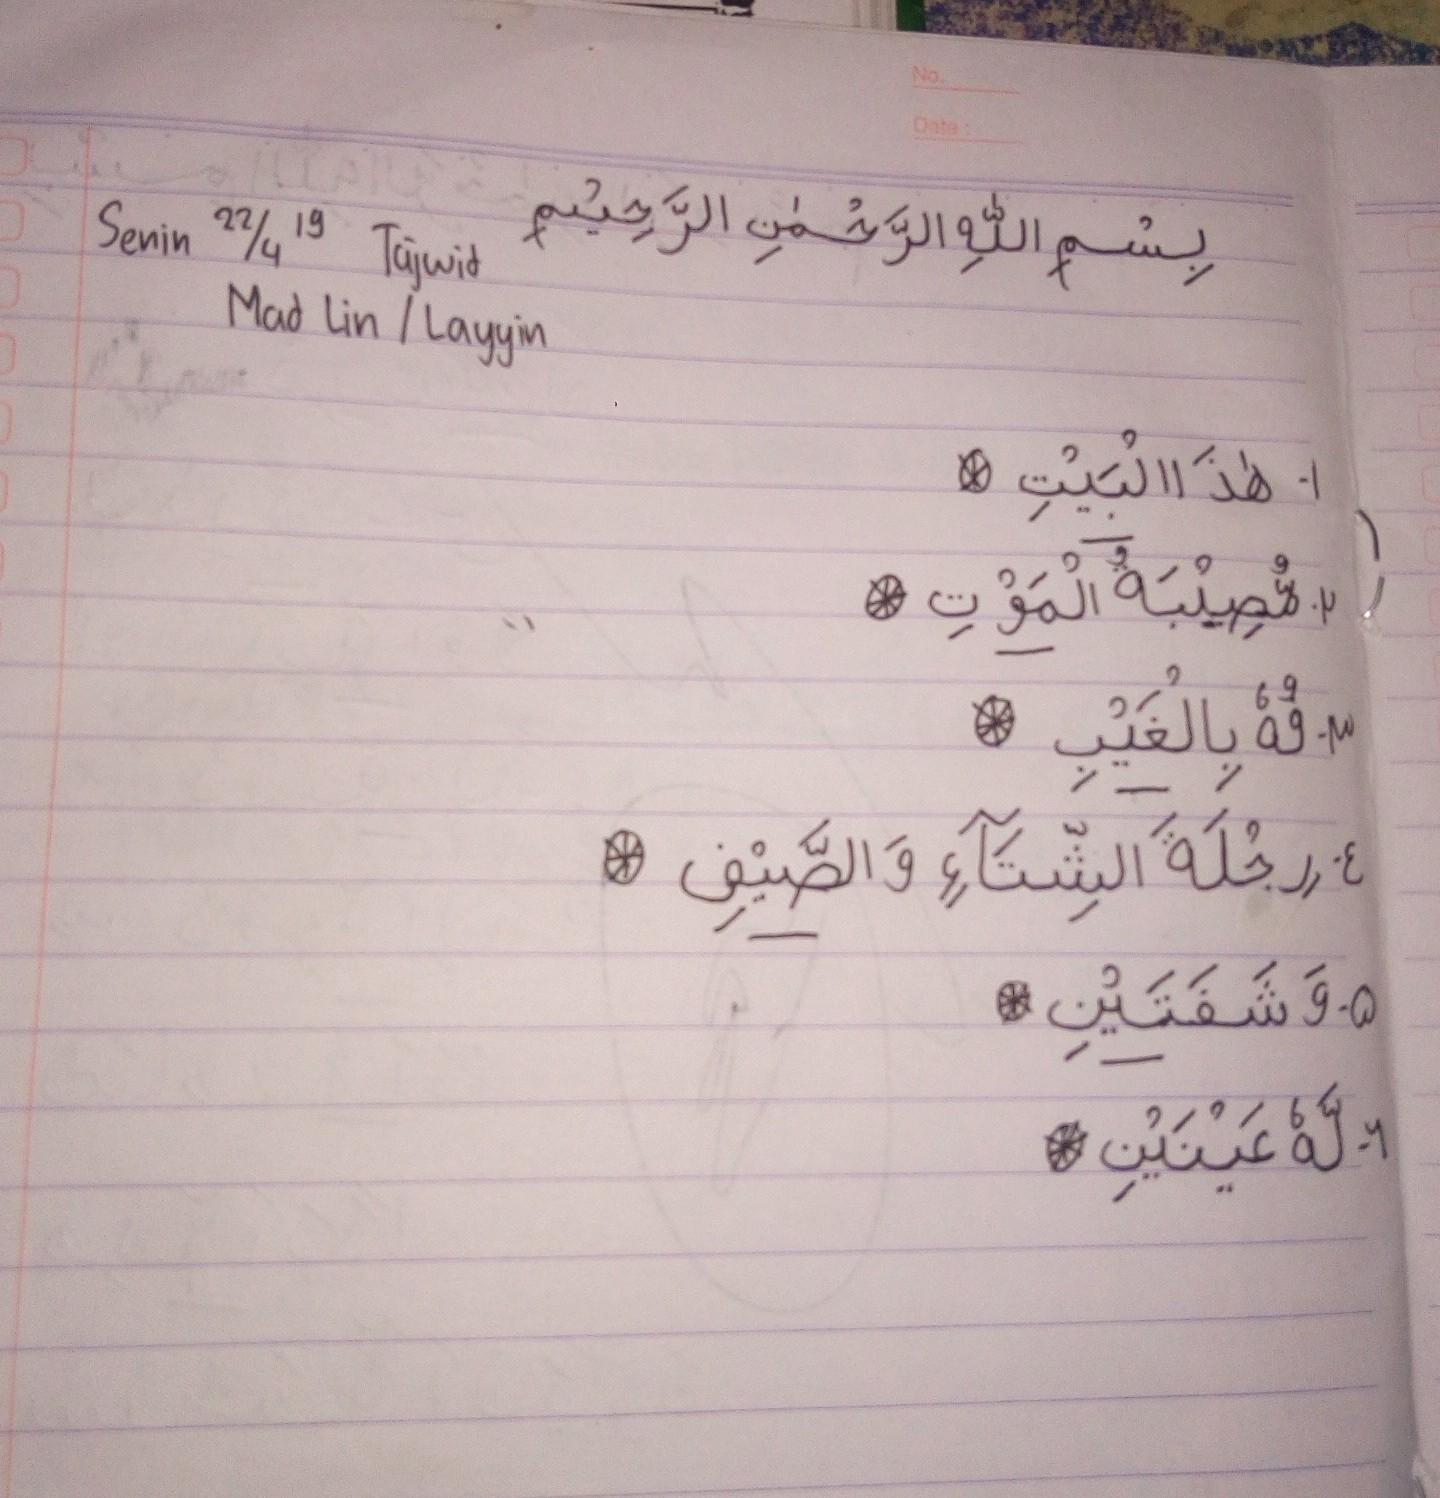 No.
Date :
بِسْمِ اللّٰهِ الرَّحْمٰنِ الرَّحِيْمِ
Senin 22/4 19 Tajwid
Mad Lin / Layyin
١- هٰذَا الْبَيْتِ
٢- مُّصِيْبَةُ الْمَوْتِ
٣- وْهُ بِالْغَيْبِ
٤- رِحْلَةَ الشِّتَآءِ وَالصَّيْفِ
٥- وَشَفَتَيْنِ
٦- لَّهُ عَيْنَيْنِ